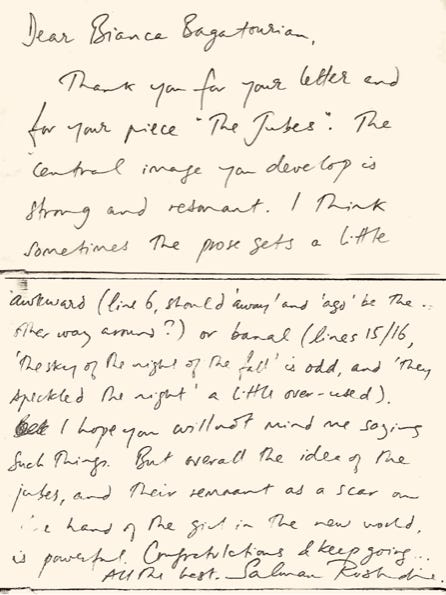 Dear Bianca Bagatourian,
Thank you for your letter and
for your piece "The Jubes". The
central image you develop is
strong and resonant. I think
sometimes the prose gets a little
awkward (line 6, should 'away' and 'ago' be the
other way around?) or banal (lines 15/16,
'the sky of the night of the fall' is odd, and 'they
speckled the night' a little over-used).
I hope you will not mind me saying
such things. But overall the idea of the
jubes, and their remnant as a scar on
hand of the girl in the new world,
is powerful. Congratulations & keep going...
All the best. Salman Rushdie.